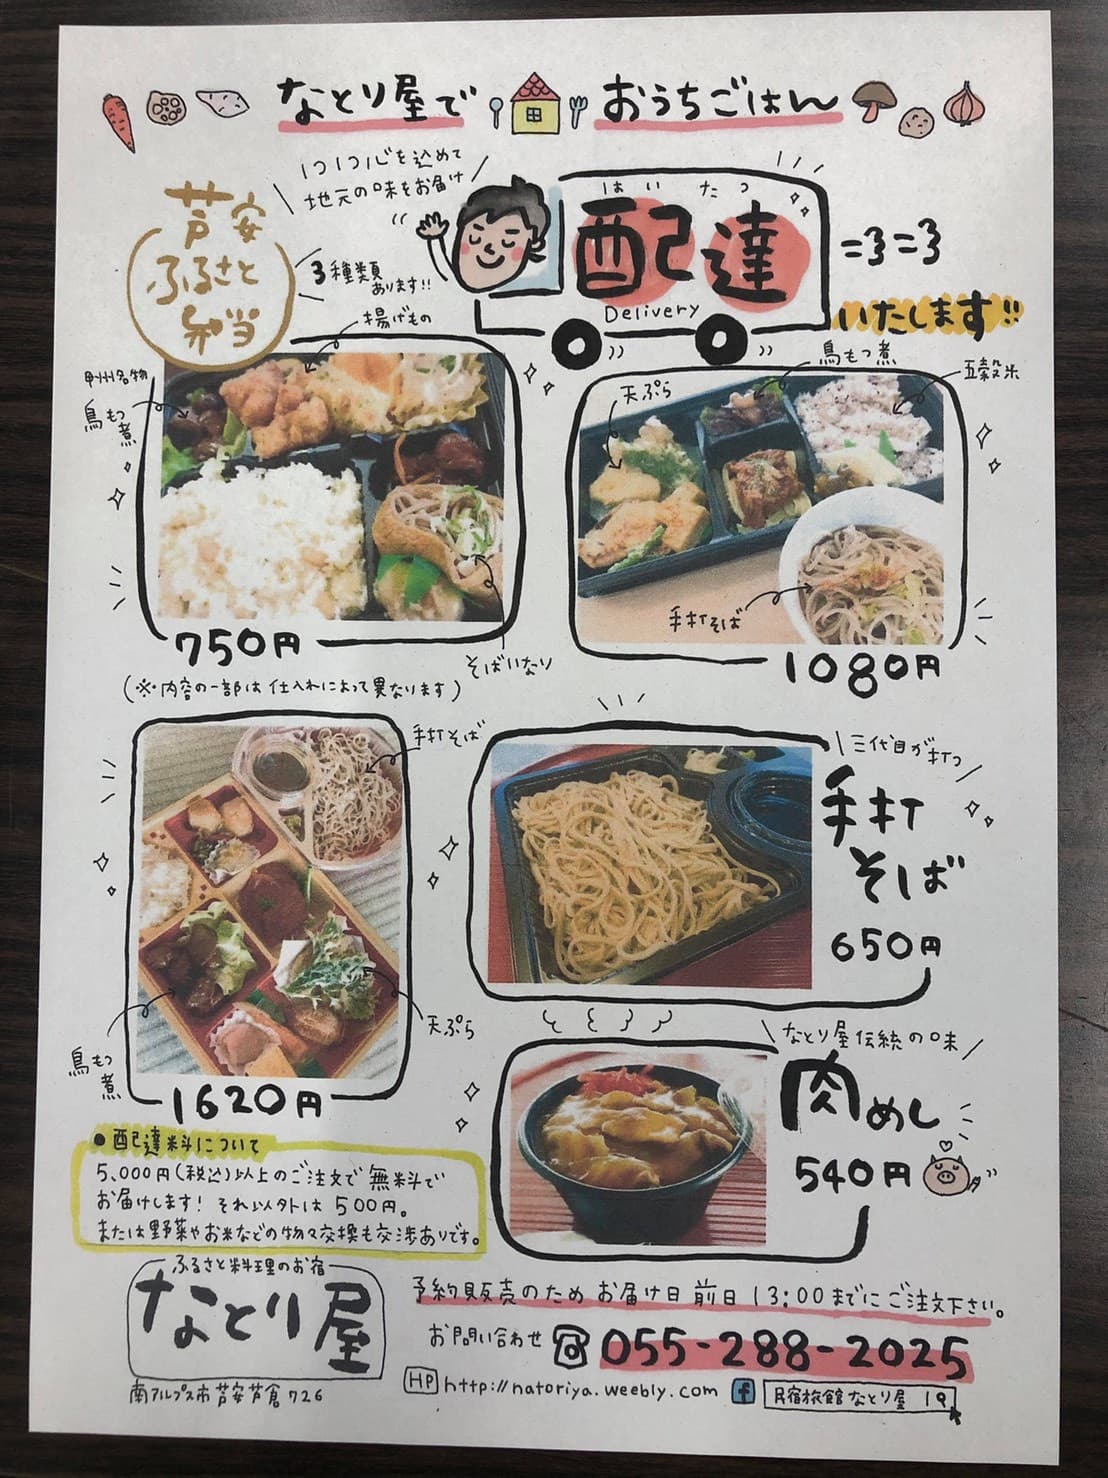 なとり屋で おうちごはん
コツコツ心を込めて
地元の味をお届け
芦安
ふるさと
弁当
3種類
あります!!
はいたつ
配達
Delivery
いたします!!
揚げもの
甲州名物
鳥もつ
煮
750円
そばいなり
(※内容の一部は仕入れによって異なります)
天ぷら
鳥もつ煮
五穀米
手打そば
1080円
手打そば
天ぷら
鳥もつ
煮
1620円
三代目が打つ
手打
そば
650円
なとり屋伝統の味
肉めし
540円
●配達料について
5,000円(税込)以上のご注文で無料で
お届けします! それ以外は500円。
または野菜やお米などの物々交換も交渉ありです。
ふるさと料理のお宿
なとり屋
南アルプス市芦安芦倉726
予約販売のためお届け日前日13:00までにご注文下さい。
お問い合わせ ☎055-288-2025
HP http://natoriya.weebly.com f 民宿旅館なとり屋